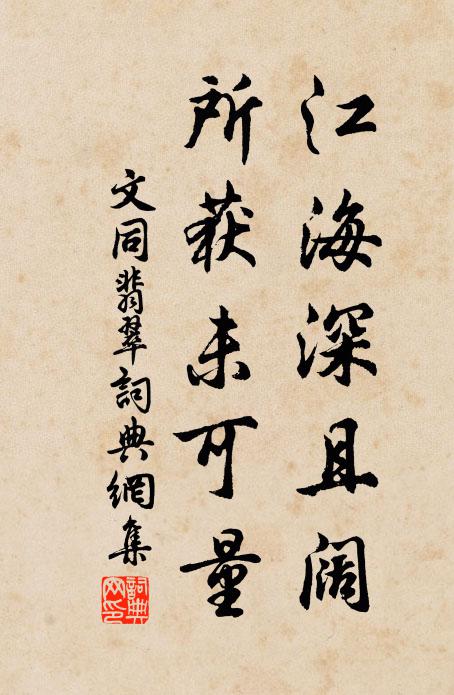 江海深且阔
所获未可量
文同翡翠詞典網集
詞典
网印